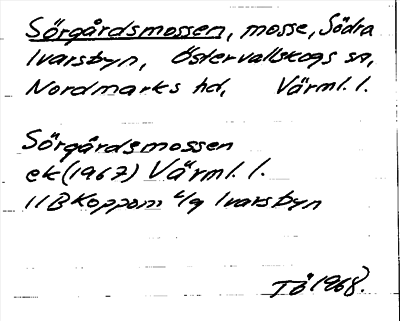 Sörgårdsmossen, mosse, Södra
Ivarsbyn, Östervallskogs sn,
Nordmarks hd, Värml. l.
Sörgårdsmossen
ek (1967) Värml. l.
11B Koppom 4/g Ivarsbyn
TÖ 1968.